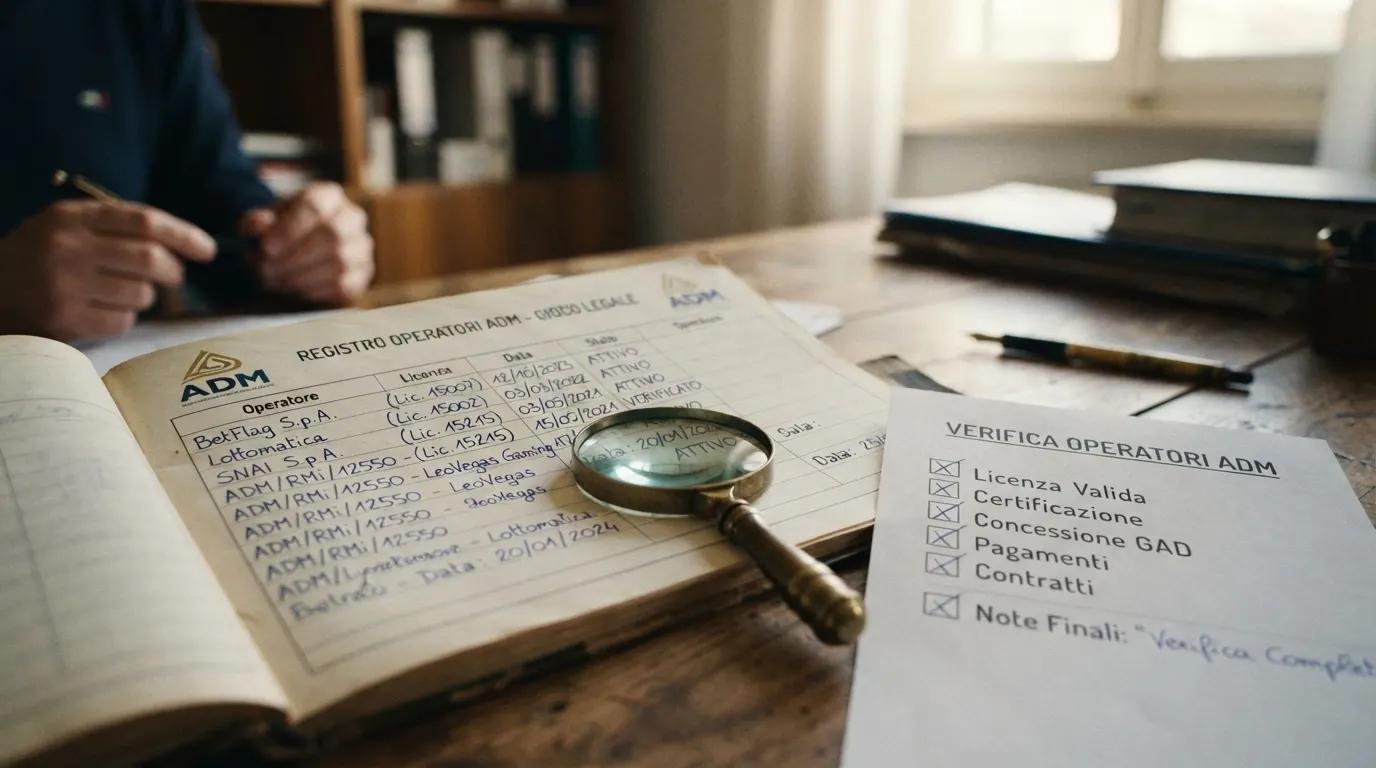 REGISTRO OPERATORI ADM - GIOCO LEGALE
ADM
ADM
Operatore Licenza Data Stato
BetFlag S.p.A. (Lic. 15007) 12/10/2023 ATTIVO
Lottomatica (Lic. 15002) 03/03/2022 ATTIVO
SNAI S.p.A. (Lic. 15215) 03/05/2021 ATTIVO
ADM/RMi/12550 - (Lic. 15215) 15/05/2021 VERIFICATO
ADM/RMi/12550 - LeoVegas Gaming
ADM/RMi/12550 - LeoVegas
ADM/RMi/12550
- Lottomatica
- Data: 20/01/2024
20/01/202
ATTIVO
Data:
VERIFICA OPERATORI ADM
Licenza Valida
Certificazione
Concessione GAD
Pagamenti
Contratti
Note Finali: "Verifica Complet